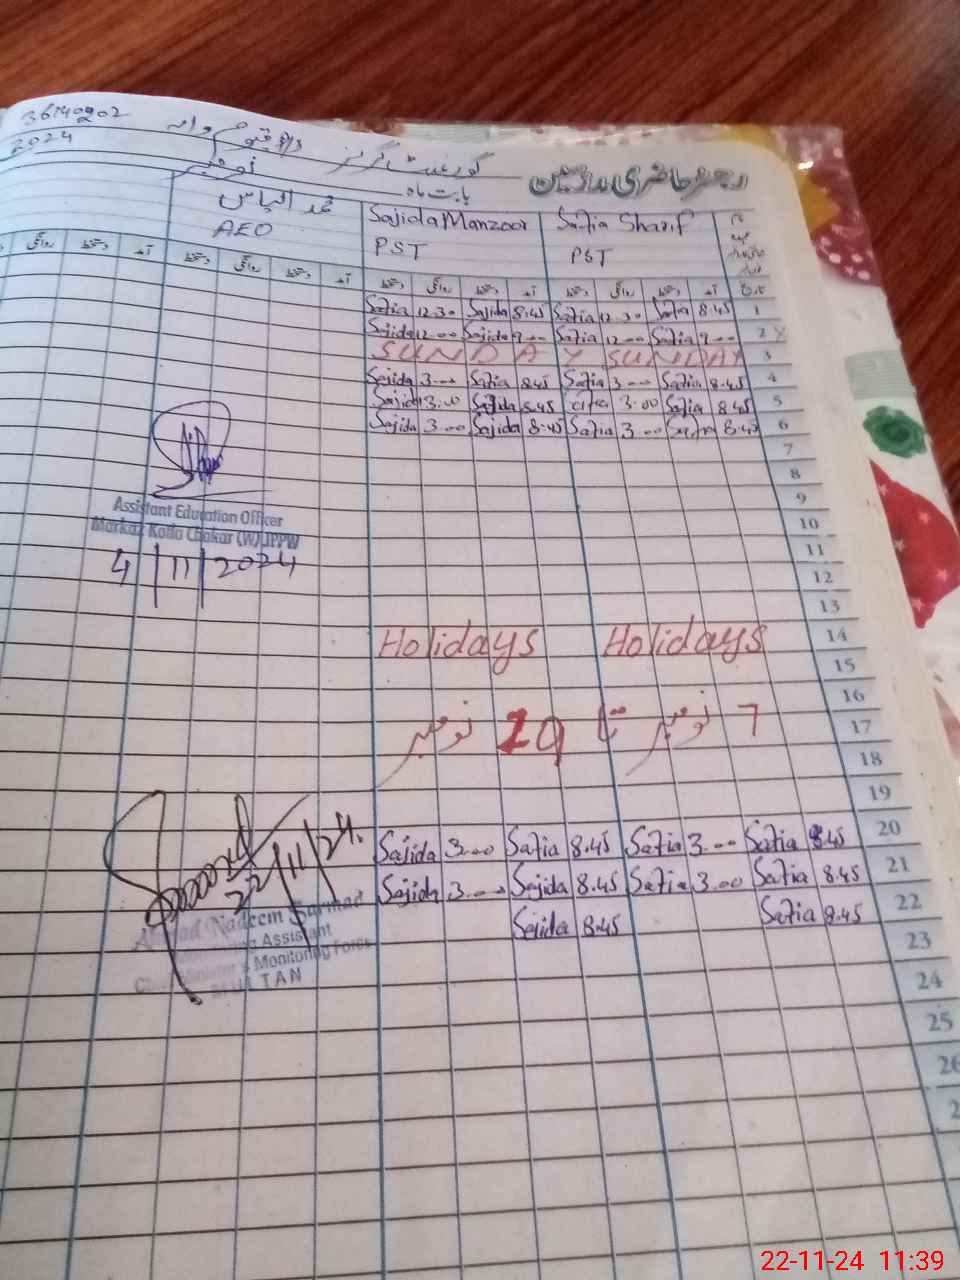 36140902
2024
رجسٹر حاضری ملازمین
گورنمنٹ گرلز
بابت ماہ نومبر
Safia Sharif
PST
Sajida Manzoor
PST
محمد الیاس
AEO
تاریخ آمد دستخط روانگی دستخط آمد دستخط روانگی دستخط آمد دستخط روانگی دستخط آمد دستخط روانگی
Safia 12.30 Sajida 8.45 Safia 12.30 Safia 8.45 1
Sajida 12.00 Sajida 9.00 Safia 12.00 Safia 9.00 2
SUNDAY SUNDAY 3
Sajida 3.00 Safia 8.45 Safia 3.00 Safia 8.45 4
Sajida 3.00 Sajida 8.45 3.00 Safia 8.45 5
Sajida 3.00 Sajida 8.45 Safia 3.00 Safia 8.45 6
7
8
9
Assistant Education Officer
Markaz Kotla Chakar (W) JPPW
4/11/2024
10
11
12
13
Holidays Holidays 14
15
16
7 نومبر تا 19 نومبر
17
18
19
Sajida 3.00 Safia 8.45 Safia 3.00 Safia 8.45 20
Sajida 3.00 Sajida 8.45 Safia 3.00 Safia 8.45 21
Sajida 8.45 Safia 8.45 22
22/11/24.
Ahmad Nadeem Sarmad
Monitoring Assistant
Chief Minister's Monitoring Force
MULTAN
23
24
25
26
22-11-24 11:39